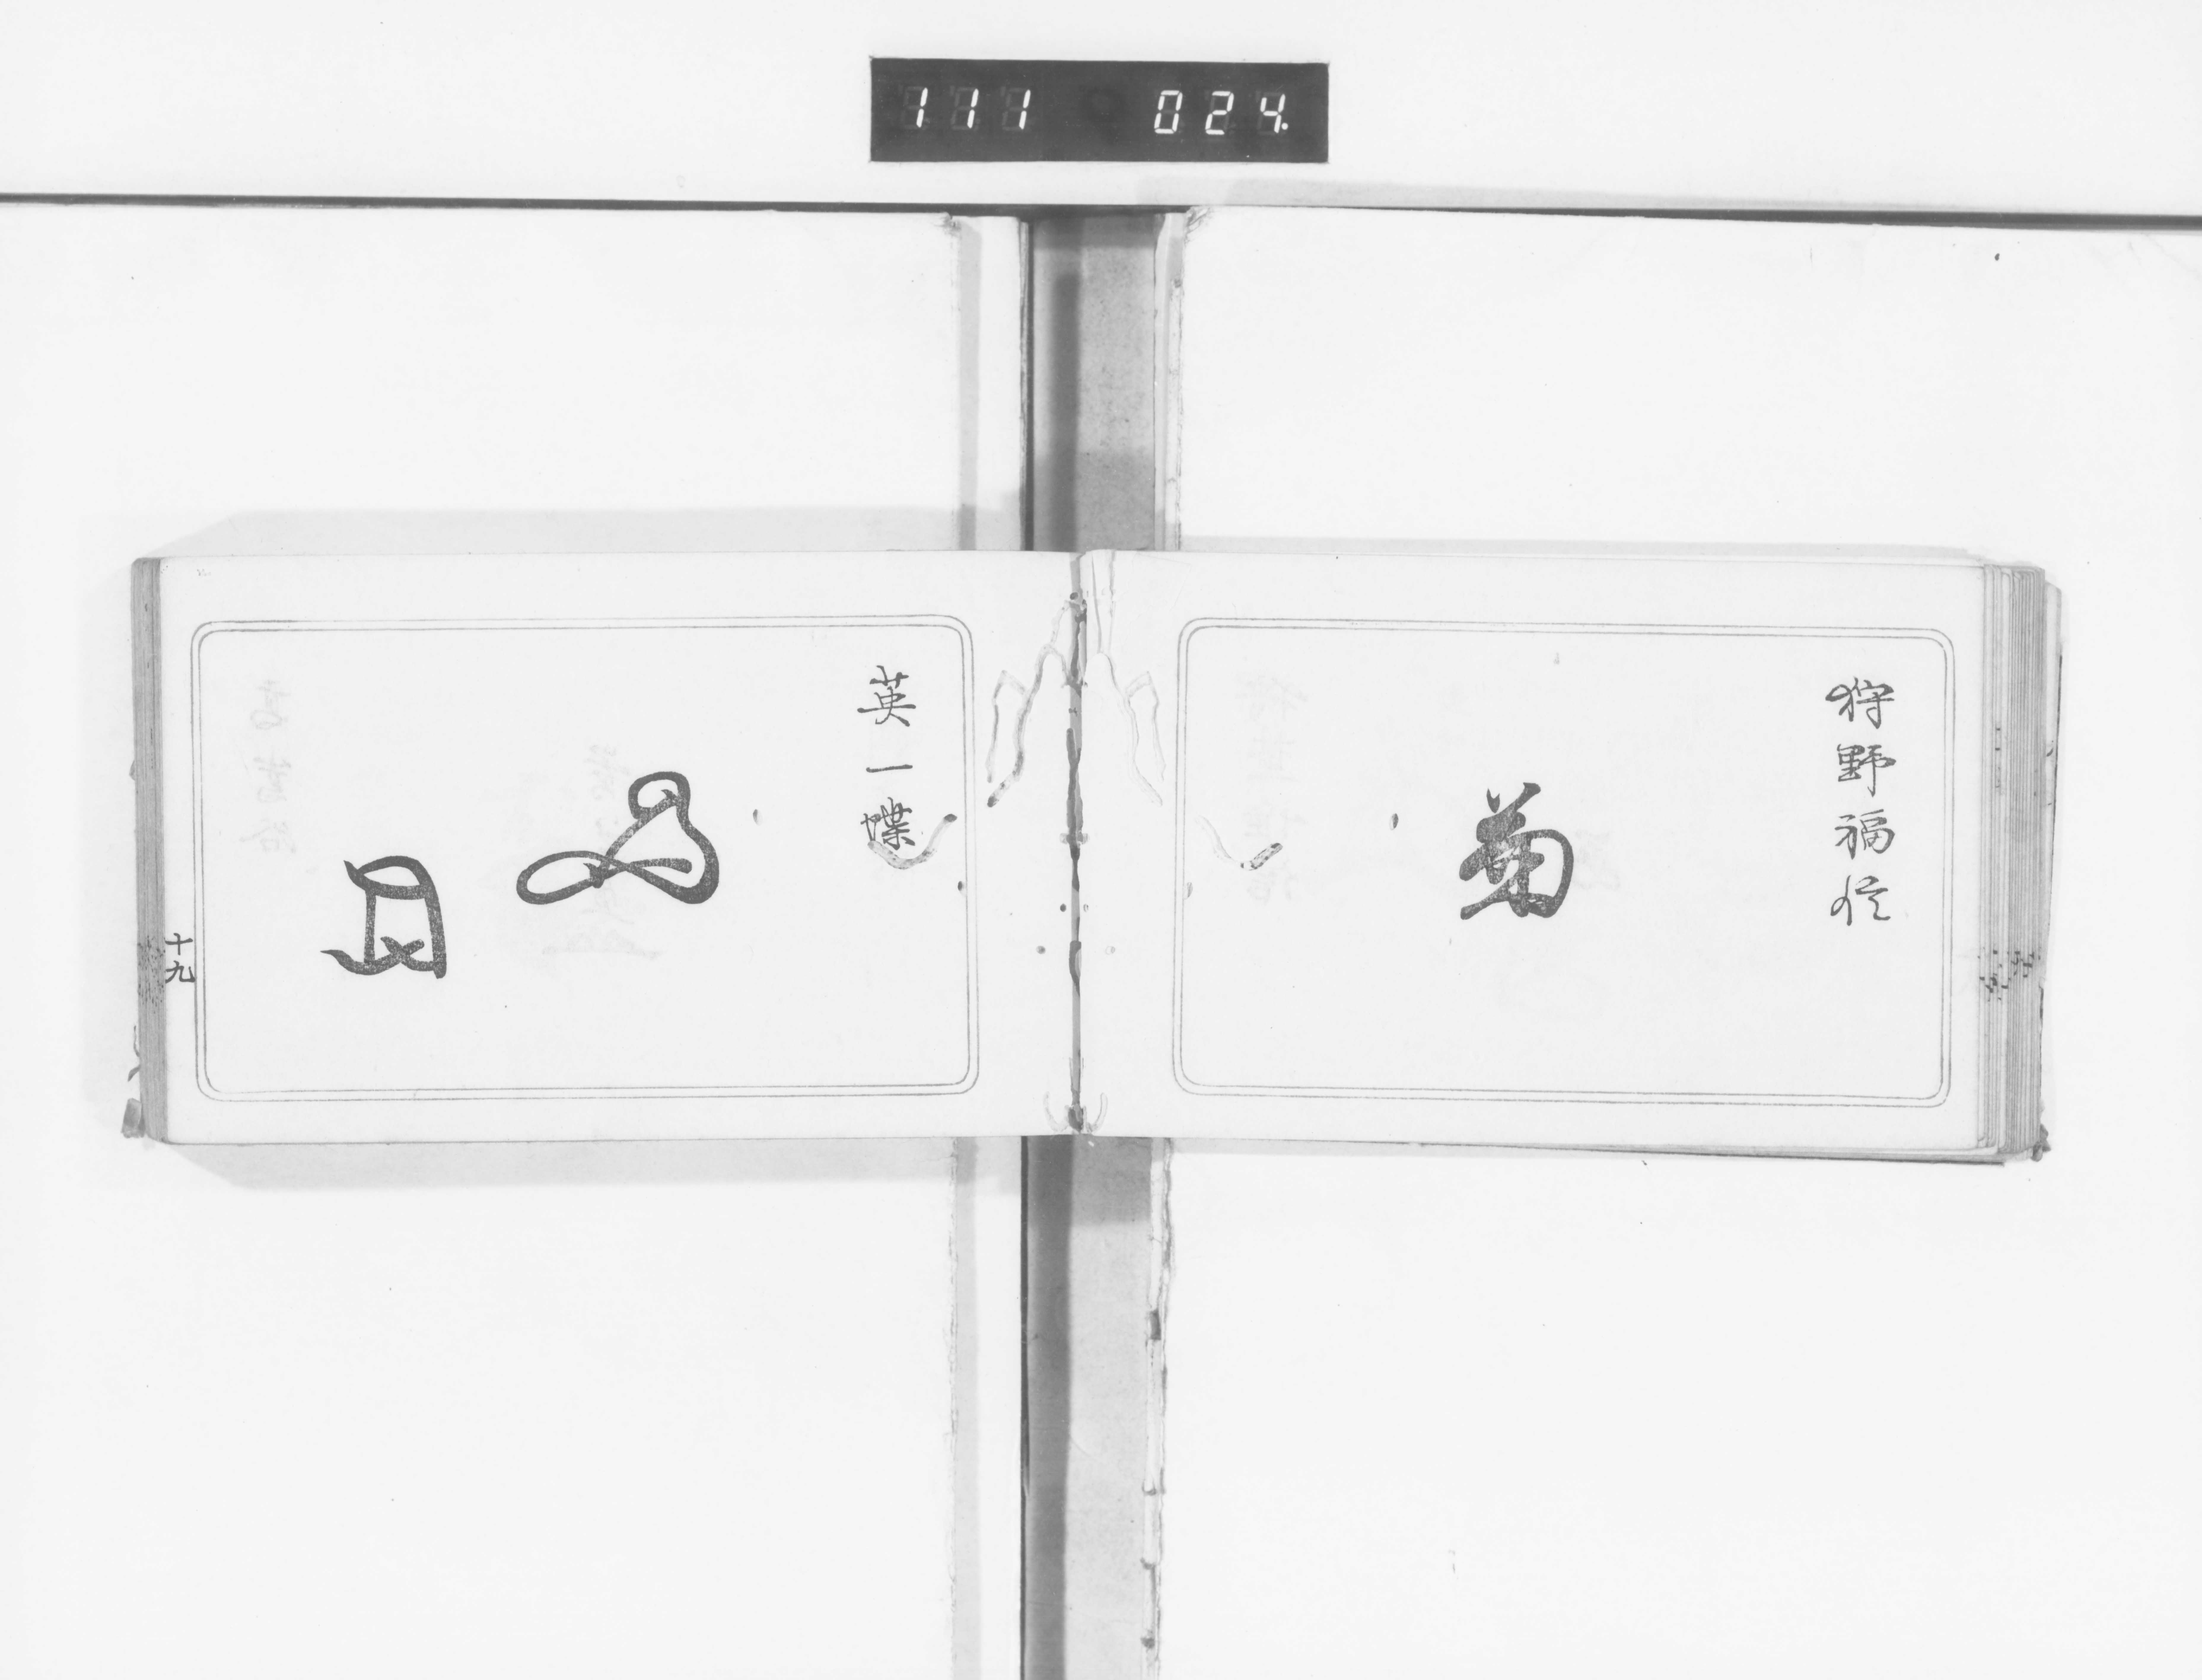 111 024
狩野福信
英一蝶
十九